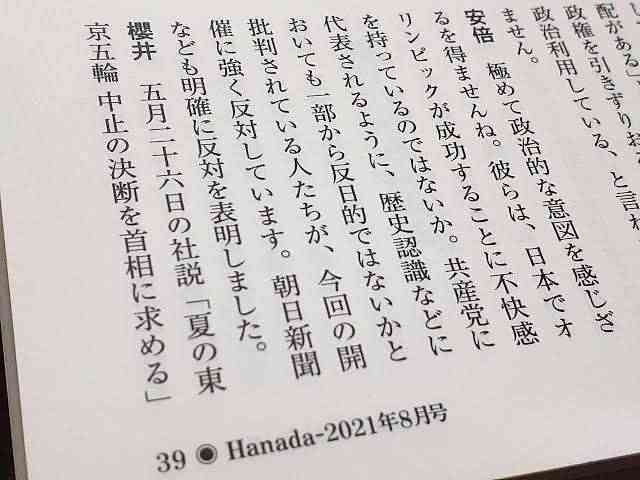 配がある」
政権を引きずりお
政治利用している、と言わ
ません。
安倍　極めて政治的な意図を感じざ
るを得ませんね。彼らは、日本でオ
リンピックが成功することに不快感
を持っているのではないか。共産党に
代表されるように、歴史認識などに
おいても一部から反日的ではないかと
批判されている人たちが、今回の開
催に強く反対しています。朝日新聞
なども明確に反対を表明しました。
櫻井　五月二十六日の社説「夏の東
京五輪 中止の決断を首相に求める」
39 ◉ Hanada-2021年8月号